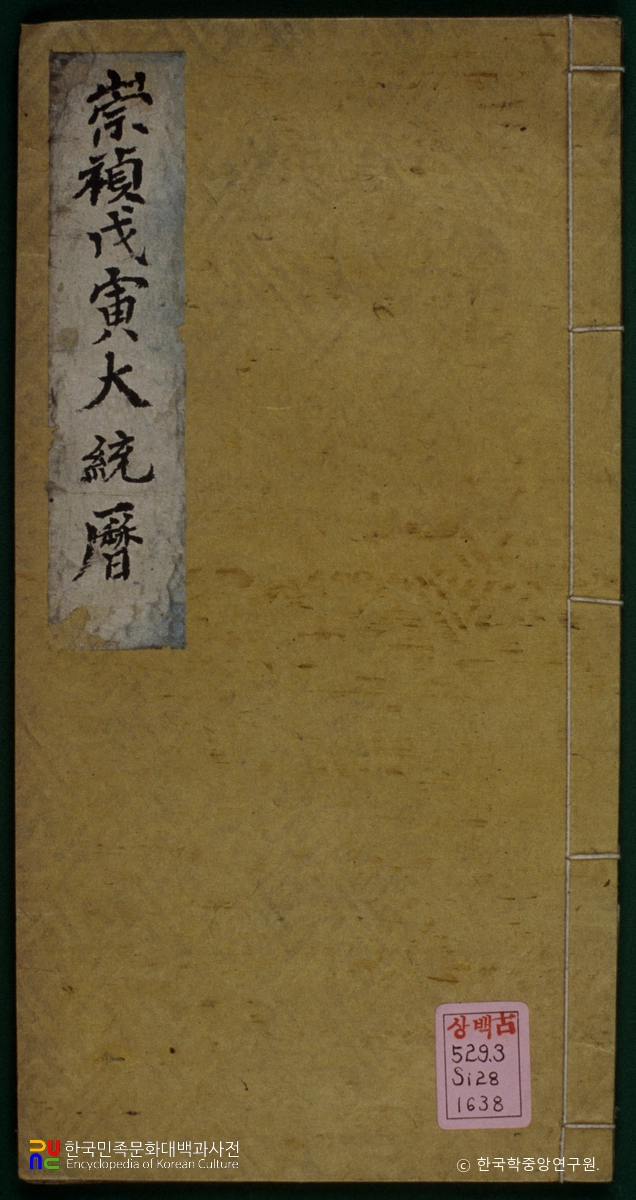 崇禎戊寅大統曆
상백古
529.3
Si28
1638
한국민족문화대백과사전
Encyclopedia of Korean Culture
ⓒ 한국학중앙연구원.